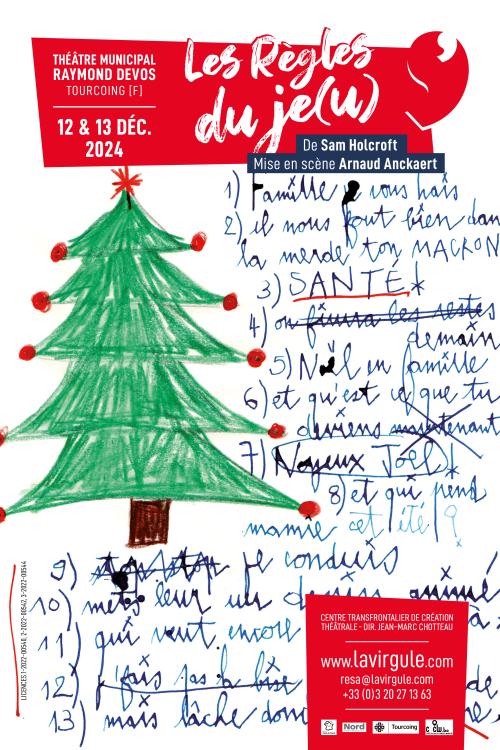 THÉÂTRE MUNICIPAL
RAYMOND DEVOS
TOURCOING [F]
12 & 13 DÉC.
2024
Les Règles
du je(u)
De Sam Holcroft
Mise en scène Arnaud Anckaert
1) Famille je vous hais
2) il nous fout bien dan
la merde ton MACRON
3) SANTÉ
4) on finira les restes
demain
5) Noël en famille
6) et qu'est ce que tu
deviens maintenant
7) Noyeux Joël
8) et qui prend
mamie cet été ?
9) je conduis
10) mets leur un dessin animé
11) qui veut encore
12) fais pas la bise
13) mais lâche donc
LICENCES 1-2022-00548, 2-2022-00542, 3-2022-00544
CENTRE TRANSFRONTALIER DE CRÉATION
THÉÂTRALE - DIR. JEAN-MARC CHOTTEAU
www.lavirgule.com
resa@lavirgule.com
+33 (0)3 20 27 13 63
Nord
Tourcoing